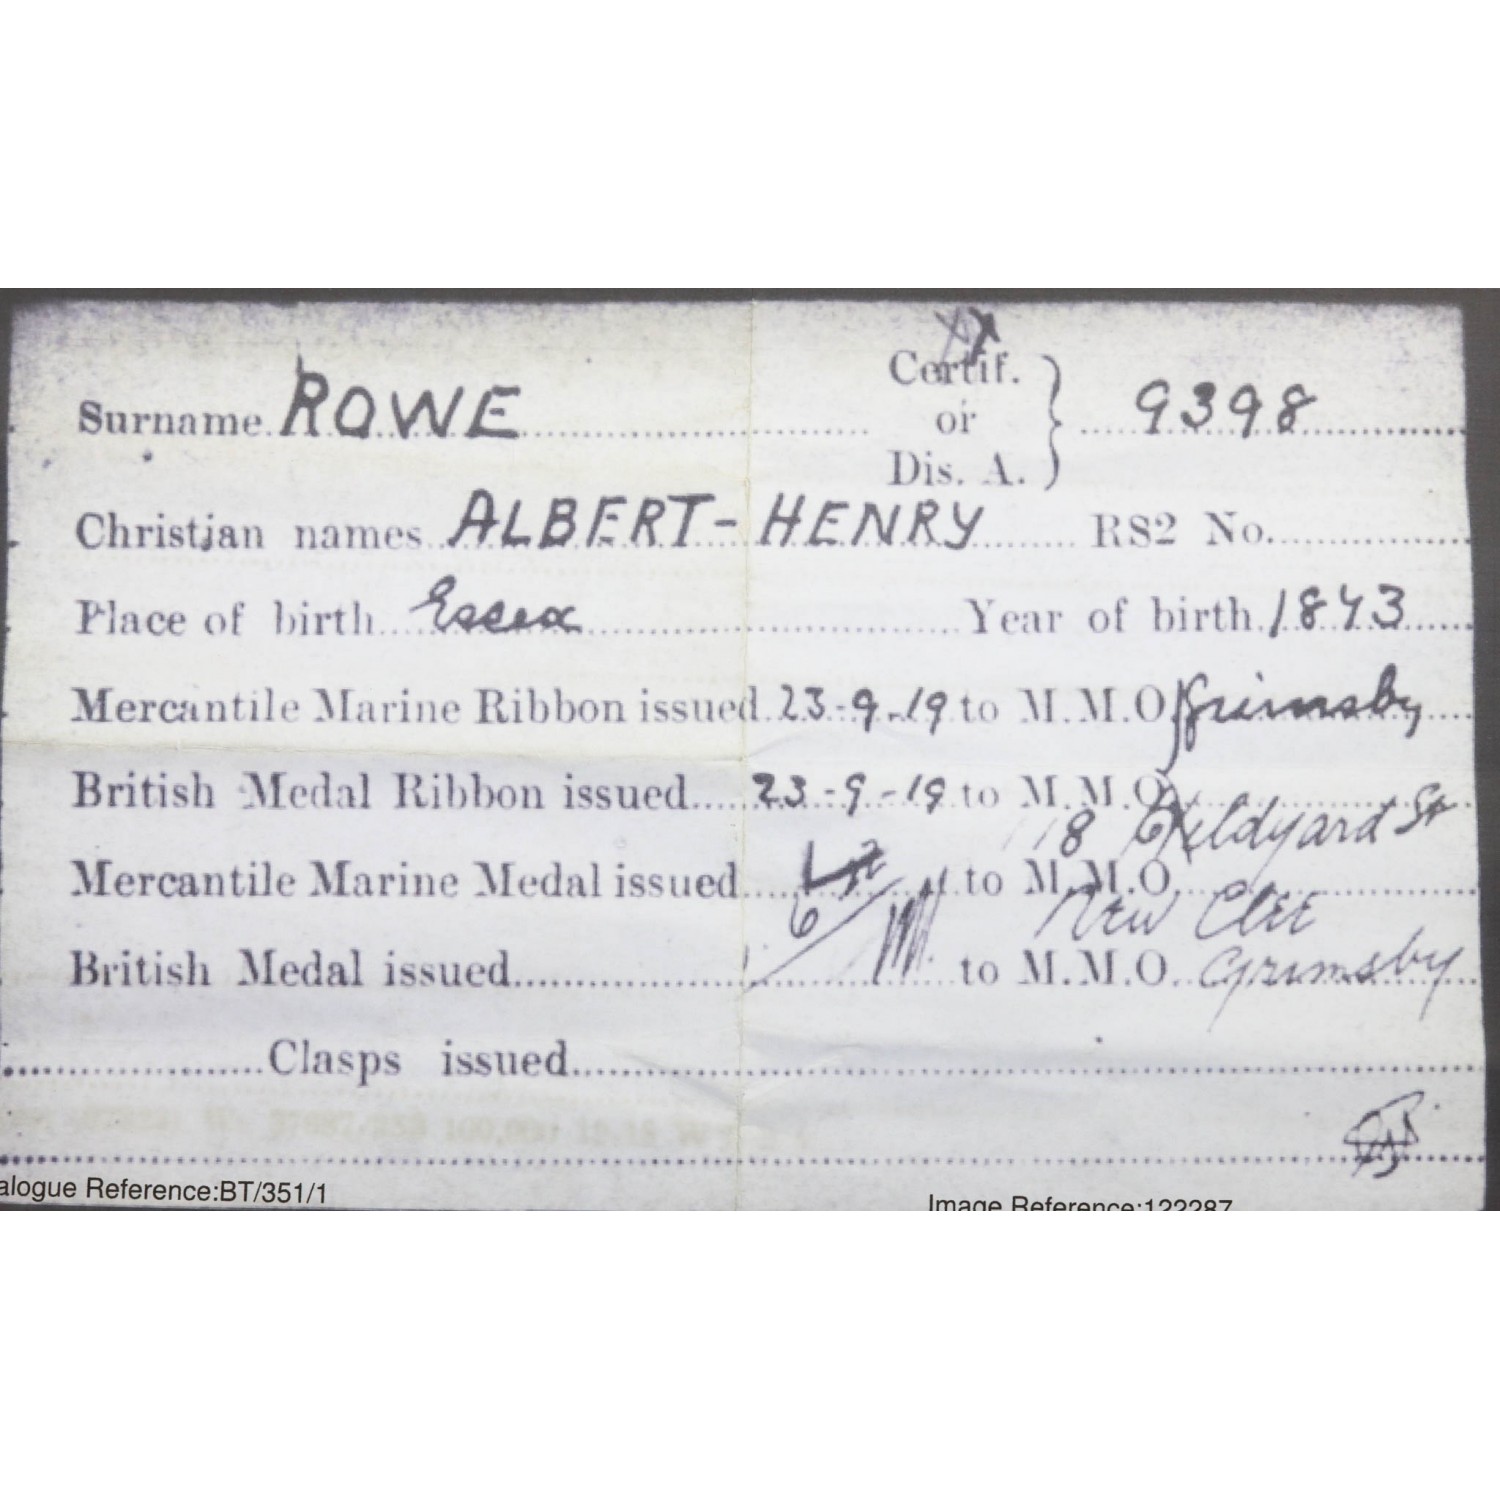 Surname ROWE Certif. or Dis. A. } 9398
Christian names ALBERT-HENRY RS2 No.
Place of birth Essex Year of birth 1843
Mercantile Marine Ribbon issued 23-9-19 to M.M.O. Grimsby
British Medal Ribbon issued 23-9-19 to M.M.O.
8 Hildyard St
Mercantile Marine Medal issued to M.M.O.
New Clee
British Medal issued to M.M.O. Grimsby
Clasps issued
alogue Reference:BT/351/1
Image Reference:122287